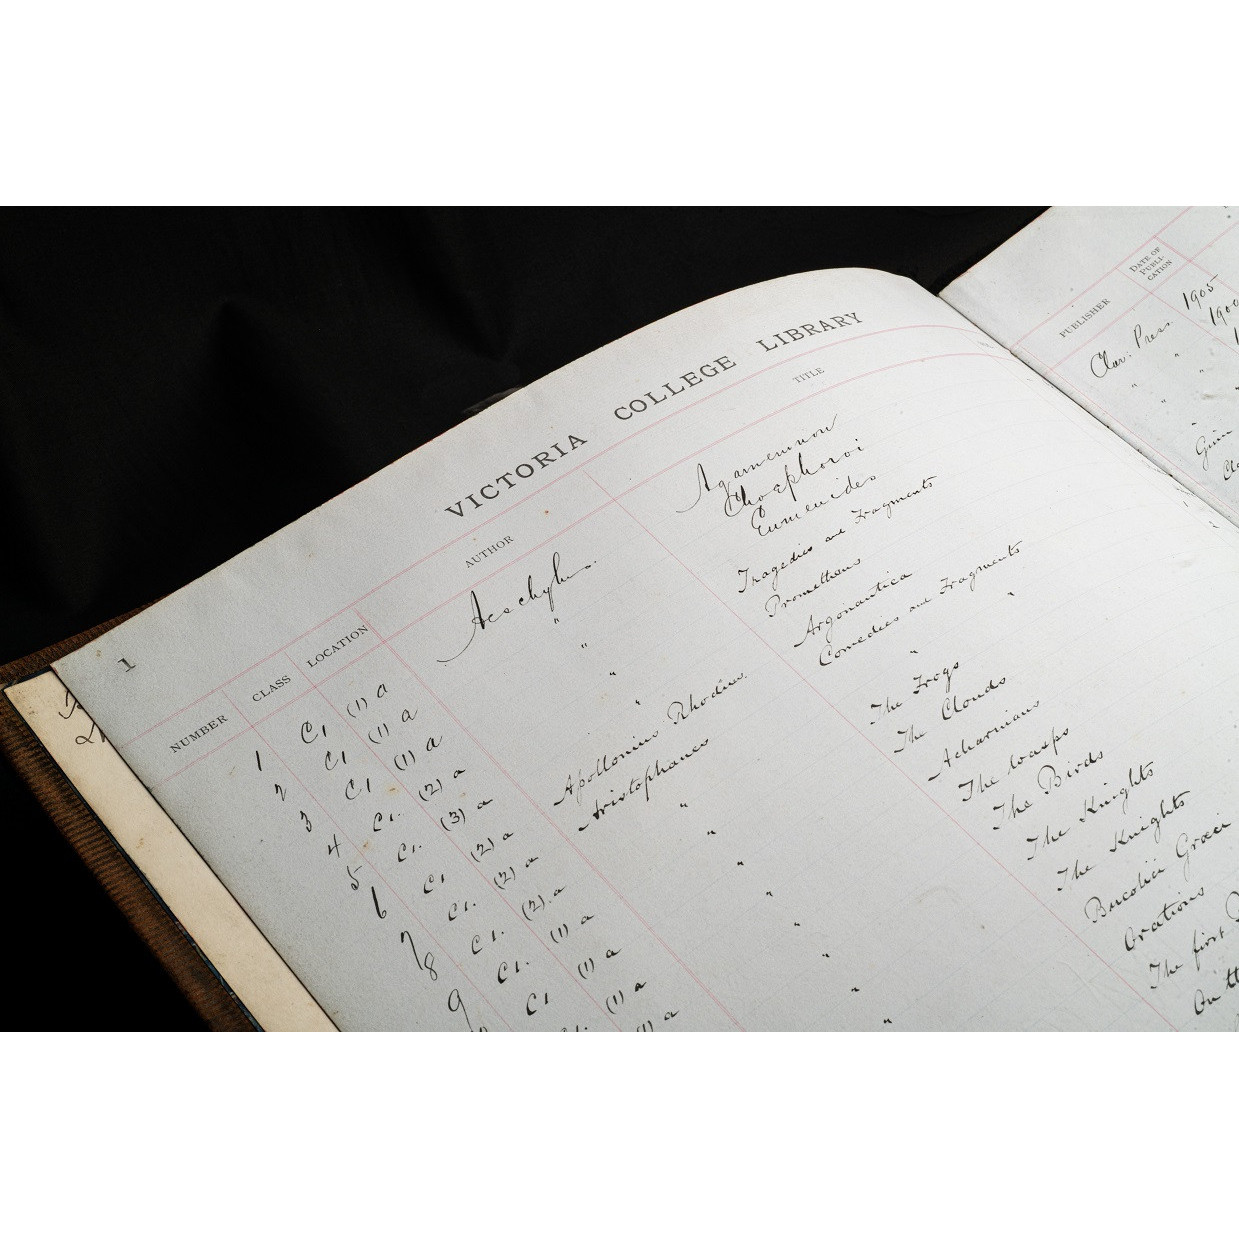 VICTORIA COLLEGE LIBRARY
1
NUMBER CLASS LOCATION AUTHOR TITLE
1 Cl (1) a Aeschylus. Agamemnon
2 Cl (1) a " Choephoroi
3 Cl (1) a " Eumenides
4 Cl. (2) a " Tragedies and Fragments
5 Cl. (3) a " Prometheus
6 Cl. (2) a Apollonius Rhodius. Argonautica
7 Cl. (2) a Aristophanes Comedies and Fragments
8 Cl. (2) a " " "
9 Cl. (1) a " The Frogs
Cl (1) a " The Clouds
Cl. (1) a " Acharnians
(1) a " The Wasps
" The Birds
" The Knights
" The Knights
Bucolici Graeci
Orations
The first
On the
PUBLISHER DATE OF PUBLI- CATION
Clar: Press 1905
" 1900
" "
" "